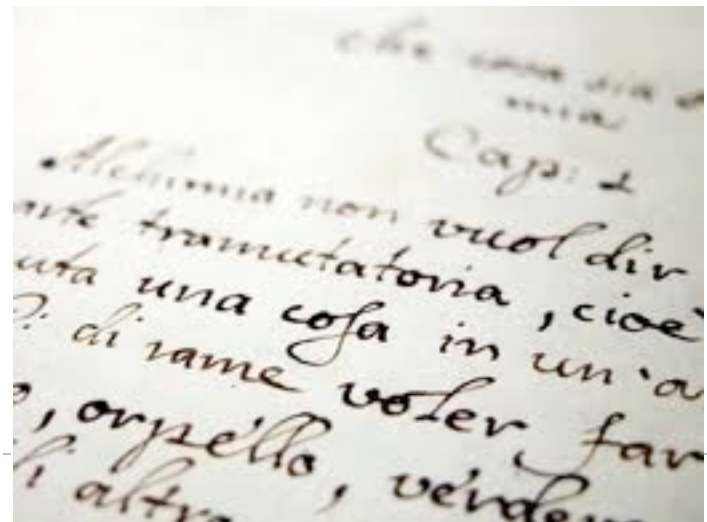 che cosa sia
mia
Cap: 1
Alchimia non vuol dir
arte tramutatoria, cioè
uta una cosa in un'a
di rame voler far
o, orpello, verder
li altr